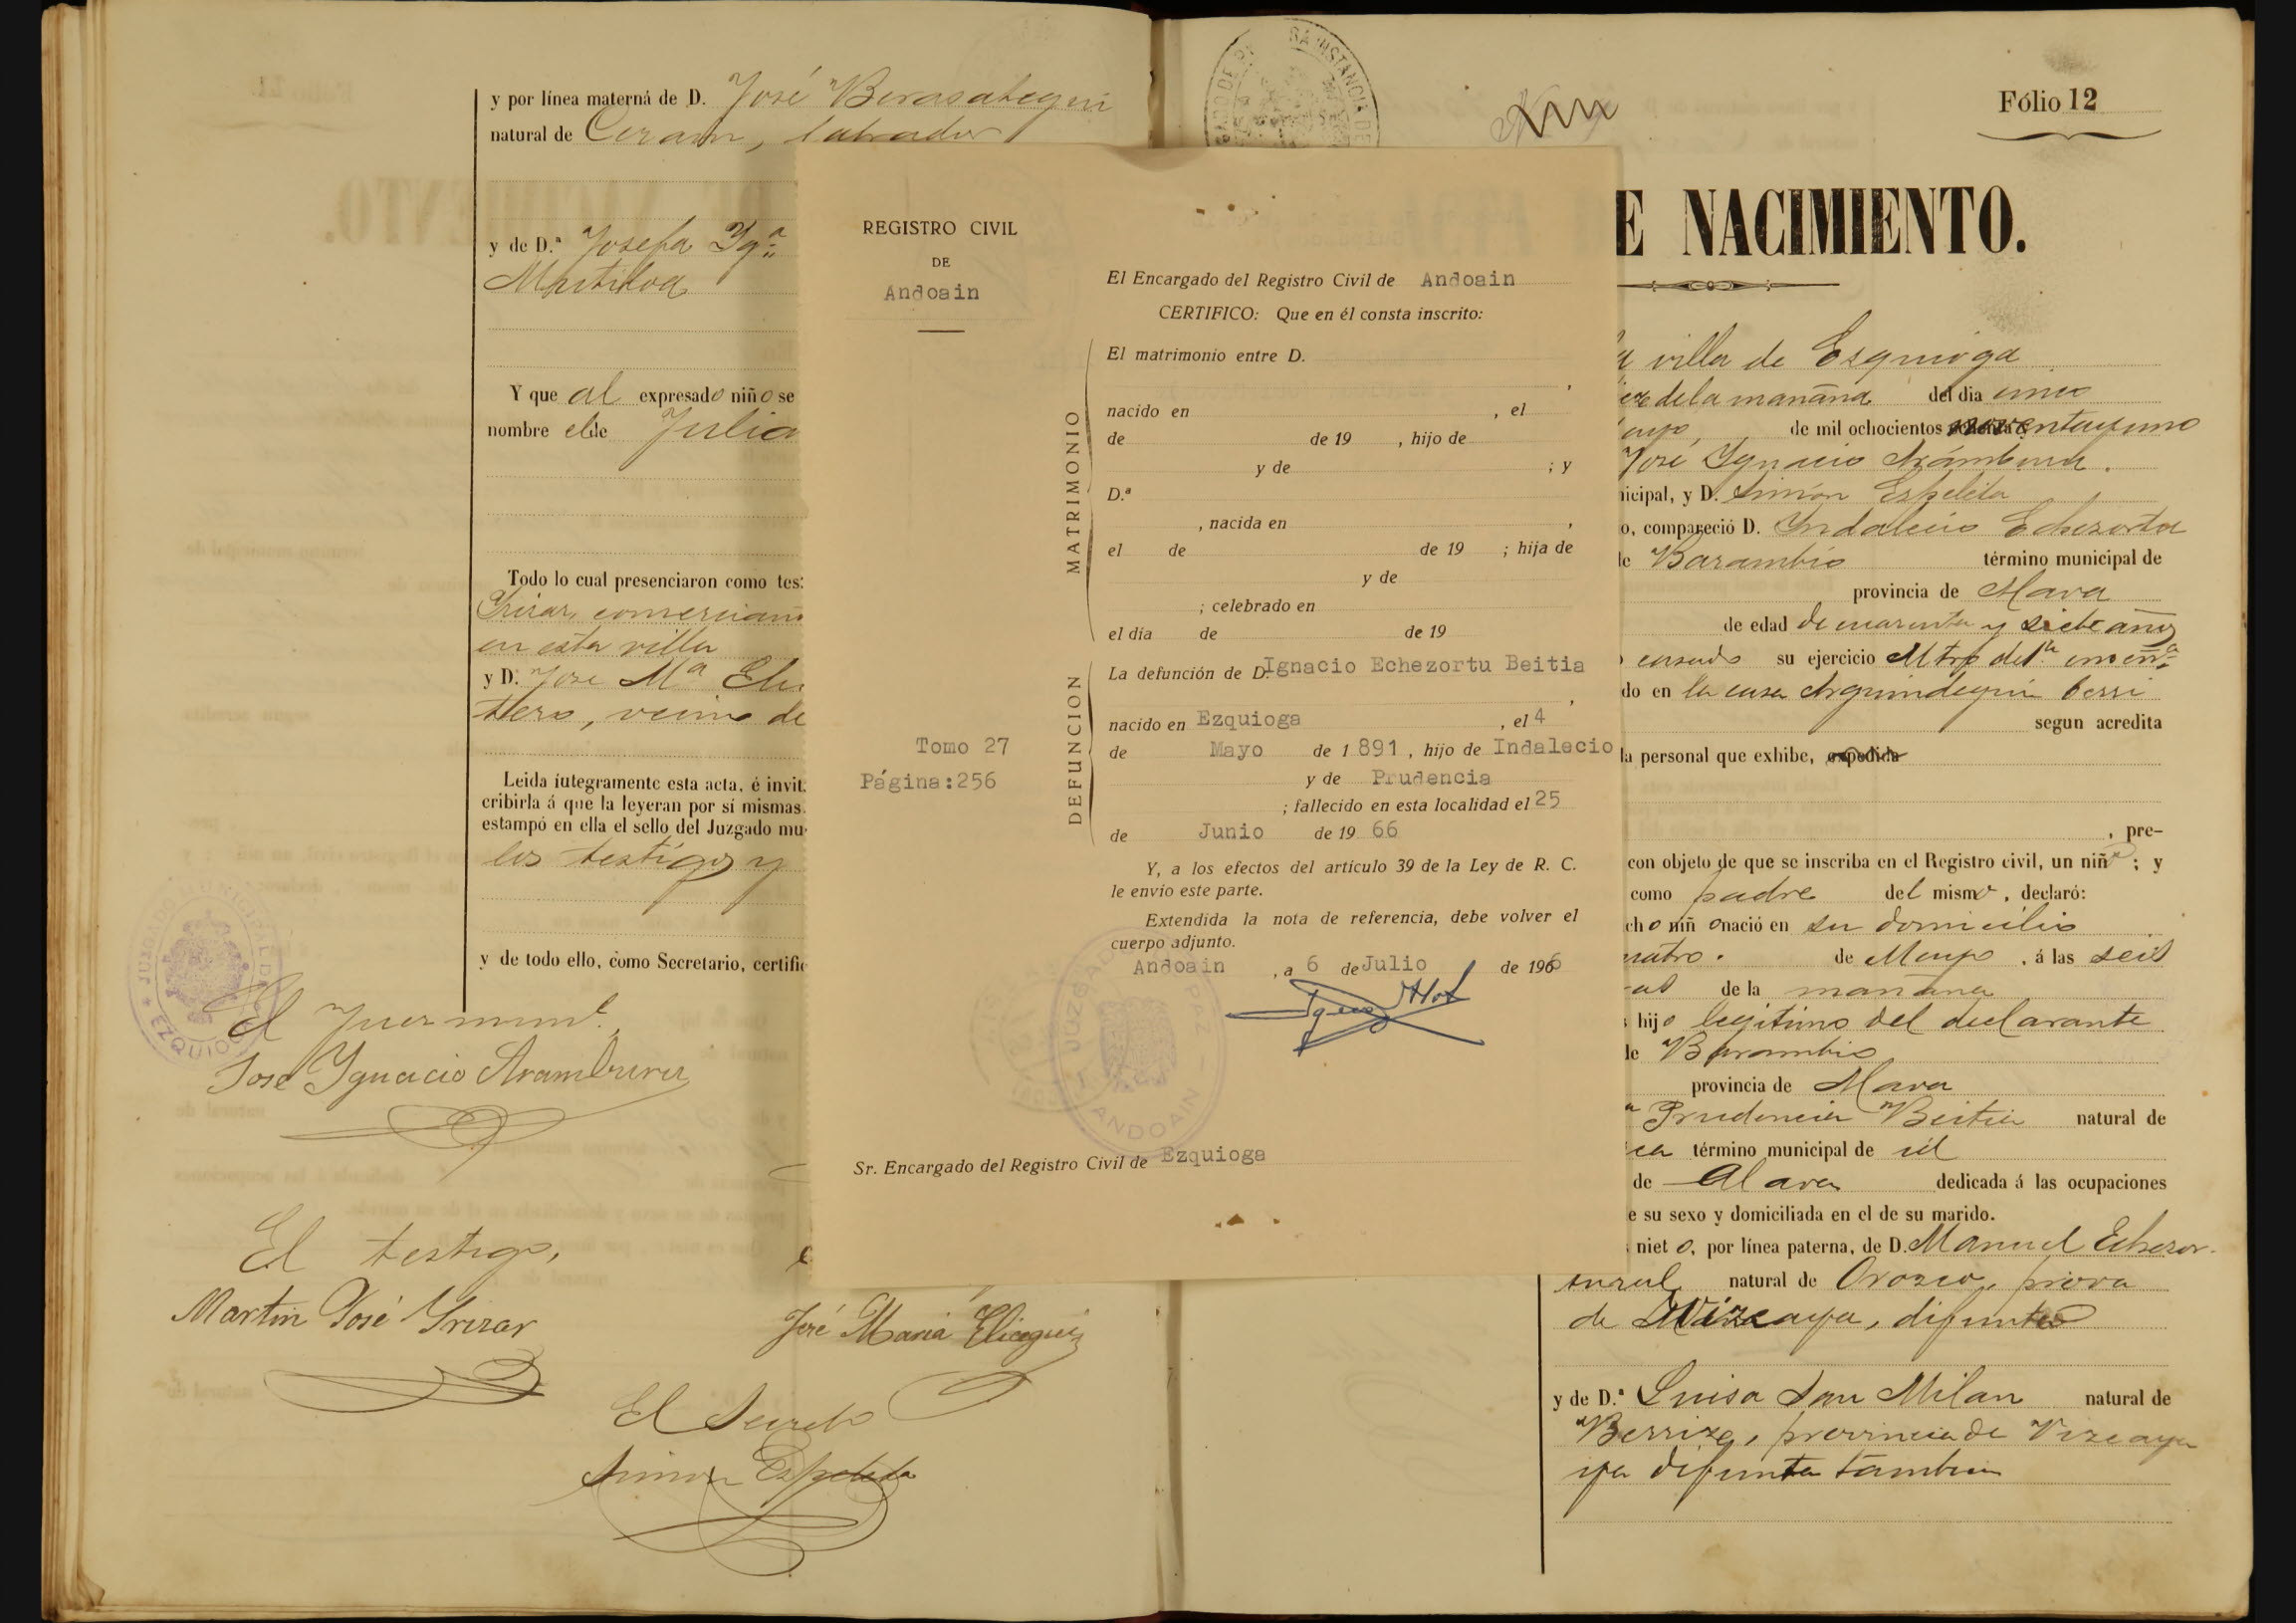 y por línea materná de D. José Berasategui
natural de Cerain, labrador
y de D.ª Josefa Yg.ª
Murtiloa
Y que al expresado niño se
nombre elde Julia
Todo lo cual presenciaron como tes
Yrizar, comercian
en esta villa
y D. Jose Mª El
tero, vecino de
Leida íutegramente esta acta, é invit
cribirla á que la leyeran por sí mismas
estampó en ella el sello del Juzgado mu
los testigos y
y de todo ello, como Secretario, certific
JUZGADO MUNICIPAL DE
EZQUIOGA
El Juez munl.
José Ygnacio Aramburu
El testigo,
Martin José Yrizar
José Maria Elicegui
El Secreto
Simon Espeleta
REGISTRO CIVIL
DE
Andoain
Tomo 27
Página:256
El Encargado del Registro Civil de Andoain
CERTIFICO: Que en él consta inscrito:
MATRIMONIO
El matrimonio entre D.
,
nacido en , el
de de 19 , hijo de
y de ; y
D.ª
, nacida en ,
el de de 19 ; hija de
y de
; celebrado en
el día de de 19
DEFUNCION
La defunción de D. Ignacio Echezortu Beitia
,
nacido en Ezquioga , el 4
de Mayo de 1 891 , hijo de Indalecio
y de Prudencia
; fallecido en esta localidad el 25
de Junio de 19 66
Y, a los efectos del artículo 39 de la Ley de R. C.
le envío este parte.
Extendida la nota de referencia, debe volver el
cuerpo adjunto.
Andoain , a 6 de Julio de 1966
JUZGADO PAZ
ANDOAIN
Sr. Encargado del Registro Civil de Ezquioga
Fólio 12
E NACIMIENTO.
villa de Ezquioga
de la mañana del dia cinco
ayo, de mil ochocientos noventayuno
José Ygnacio Arámburu.
nicipal, y D. Simón Espeleta
o, compareció D. Yndalecio Echezortu
de Barambio término municipal de
provincia de Alava
de edad de cuarenta y siete años
casado su ejercicio Mtro de 1ª enseñª
do en la casa Arguindegui berri
segun acredita
la personal que exhibe, expedida
, pre-
con objeto de que se inscriba en el Registro civil, un niño ; y
como padre del mismo , declaró:
cho niñ o nació en su domicilio
uatro. de Mayo , á las seis
as de la mañana
hijo legitimo del declarante
de Barambio
provincia de Alava
ª Prudencia Beitia natural de
término municipal de id
de Alava dedicada á las ocupaciones
e su sexo y domiciliada en el de su marido.
niet o, por línea paterna, de D. Manuel Echezor-
natural de Orozco, prova
de Vizcaya, difunto
y de D.ª Luisa San Milan natural de
Berriz, provincia de Vizcaya
ya difunta tambien